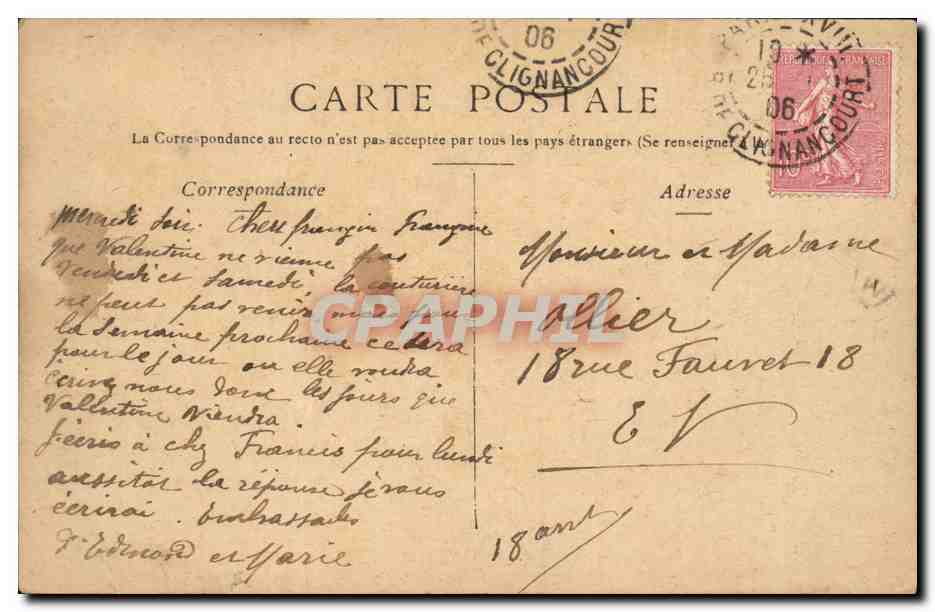 06
DE CLIGNANCOURT
19 *
25
06
CLIGNANCOURT
CARTE POSTALE
La Correspondance au recto n'est pas acceptée par tous les pays étrangers (Se renseigner
Correspondance
Adresse
Mercredi soir. Chere
que Valentine ne vienne pas
Vendredi et Samedi, la couturière
ne peut pas venir mais pour
la Semaine prochaine ce sera
pour le jour ou elle voudra
écrivez nous donc les jours que
Valentine viendra
J'écris à chez Francis pour lundi
aussitôt la réponse je vous
écrirai. Embrassades
d'Edmond et Marie
Monsieur et Madame
Ollier
18 rue Fauvet 18
E V
18 arrt
CPAPHIL